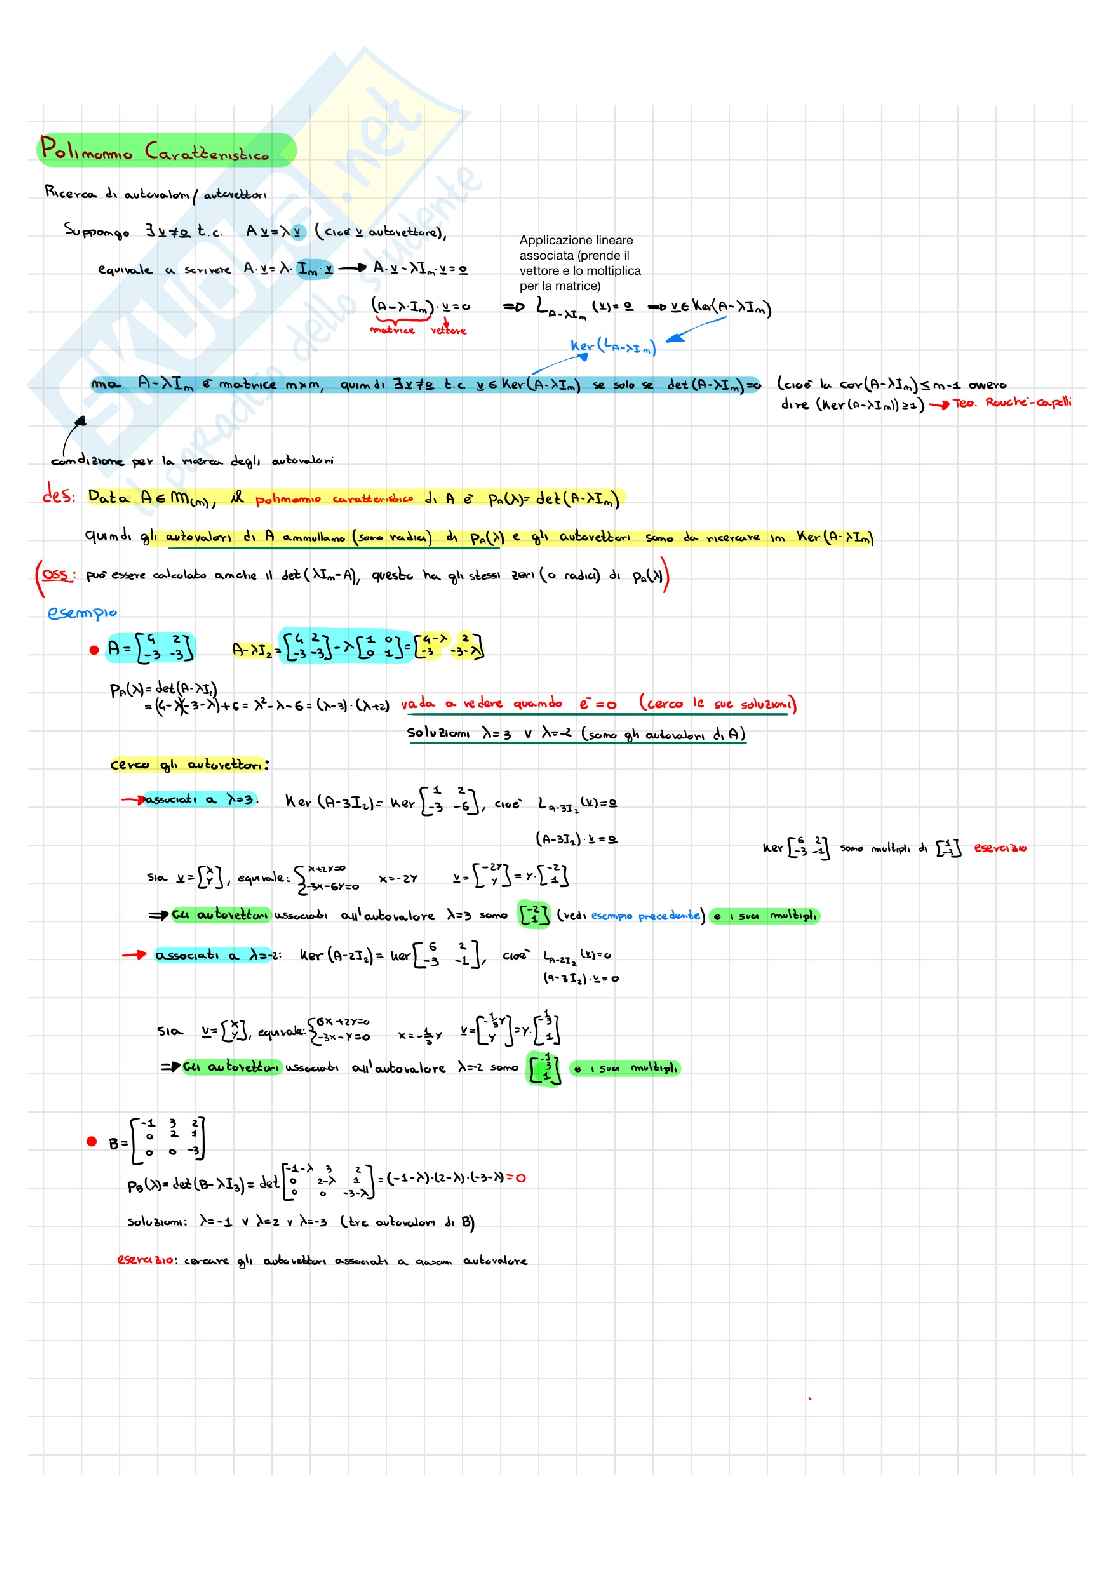 SKUOLA.net
il paradiso dello studente
Polinomio Caratteristico
Ricerca di autovalori/autovettori
Suppongo ∃v≠0 t.c. Av=λv (cioè v autovettore),
equivale a scrivere A·v=λ·In·v → A·v-λIn·v=0
Applicazione lineare
associata (prende il
vettore e lo moltiplica
per la matrice)
(A-λ·In)·v=0 ⇒ L_{A-λIn}(v)=0 ⇒ v∈Ker(A-λIn)
matrice vettore
Ker(L_{A-λIn})
ma A-λIn è matrice n×n, quindi ∃v≠0 t.c. v∈Ker(A-λIn) se solo se det(A-λIn)=0 (cioè la car(A-λIn)≤n-1 ovvero
dire (Ker(A-λIn))≥1) → Teo. Rouché-Capelli
condizione per la ricerca degli autovalori
des: Data A∈M(n), il polinomio caratteristico di A è pA(λ)=det(A-λIn)
quindi gli autovalori di A annullano (sono radici) di pA(λ) e gli autovettori sono da ricercare in Ker(A-λIn)
(oss: può essere calcolato anche il det(λIn-A), questo ha gli stessi zeri (o radici) di pA(λ))
esempio
• A=[4 2; -3 -3] A-λI2=[4 2; -3 -3]-λ[1 0; 0 1]=[4-λ 2; -3 -3-λ]
PA(λ)=det(A-λI2)
=(4-λ)(-3-λ)+6=λ²-λ-6=(λ-3)·(λ+2) vado a vedere quando è=0 (cerco le sue soluzioni)
soluzioni λ=3 ∨ λ=-2 (sono gli autovalori di A)
cerco gli autovettori:
→ associati a λ=3. Ker(A-3I2)=Ker[1 2; -3 -6], cioè L_{A-3I2}(v)=0
(A-3I2)·v=0
Ker[6 2; -3 -1] sono multipli di esercizio
sia v=[x; y], equivale: {x+2y=0; -3x-6y=0 x=-2y v=[-2y; y]=y·[-2; 1]
⇒ Gli autovettori associati all'autovalore λ=3 sono [-2; 1] (vedi esempio precedente) e i suoi multipli
→ associati a λ=-2: Ker(A-2I2)=Ker[6 2; -3 -1], cioè L_{A-2I2}(v)=0
(A-3I2)·v=0
sia v=[x; y], equivale: {6x+2y=0; -3x-y=0 x=-1/3y v=[-1/3y; y]=y·[-1/3; 1]
⇒ Gli autovettori associati all'autovalore λ=-2 sono [-1/3; 1] e i suoi multipli
• B=[-1 3 2; 0 2 1; 0 0 -3]
PB(λ)=det(B-λI3)=det[-1-λ 3 2; 0 2-λ 1; 0 0 -3-λ]=(-1-λ)·(2-λ)·(-3-λ)=0
soluzioni: λ=-1 ∨ λ=2 ∨ λ=-3 (tre autovalori di B)
esercizio: cercare gli autovettori associati a autovalore